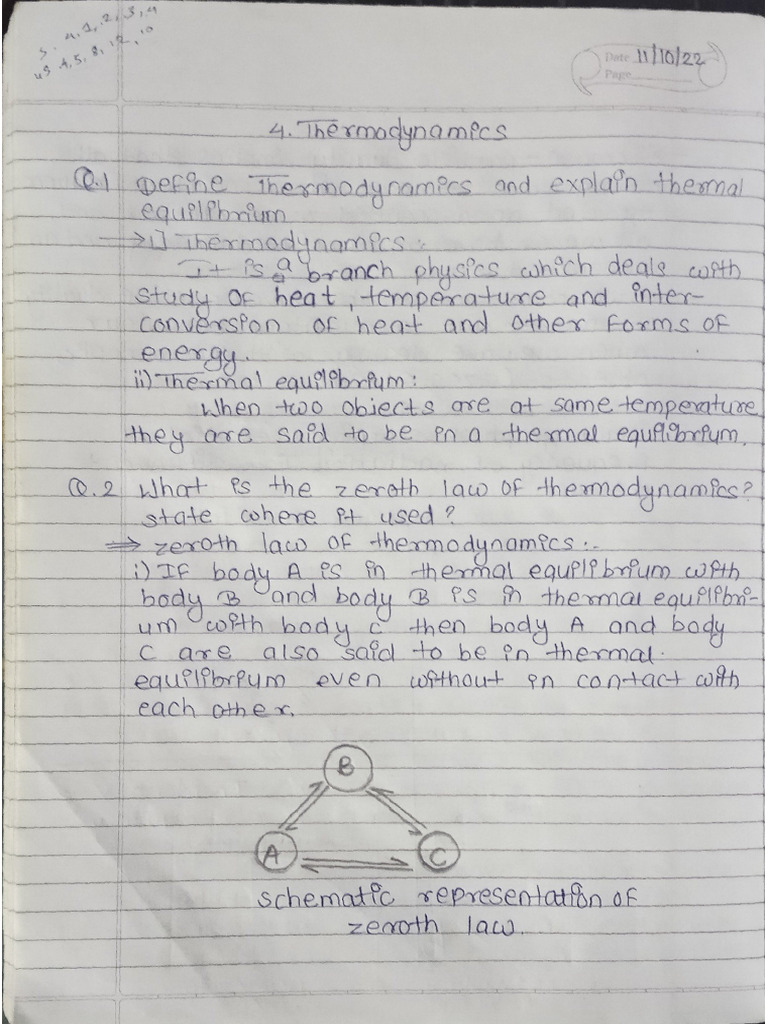 Date 11/10/22
Page
4. Thermodynamics
Q.1 Define Thermodynamics and explain thermal
equilibrium
→ i] Thermodynamics :
It is a branch physics which deals with
study of heat, temperature and inter-
conversion of heat and other forms of
energy.
ii) Thermal equilibrium :
When two objects are at same temperature
they are said to be in a thermal equilibrium.
Q.2 What is the zeroth law of thermodynamics?
state where it used?
⇒ zeroth law of thermodynamics :-
i) If body A is in thermal equilibrium with
body B and body B is in thermal equilibri-
um with body C then body A and body
C are also said to be in thermal.
equilibrium even without in contact with
each other.
B
A C
schematic representation of
zeroth law.